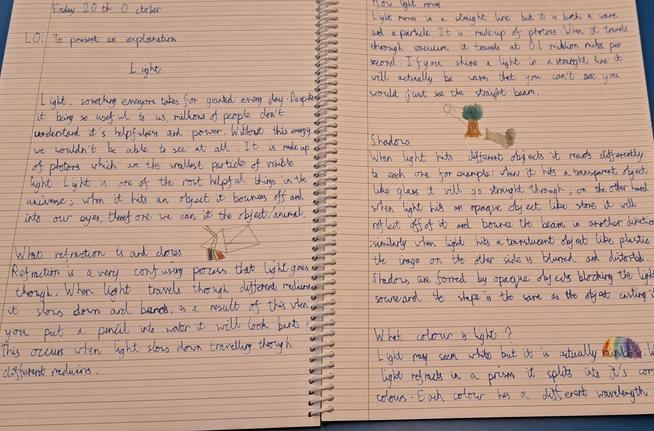 Friday 20th October
LO: To present an explanation
Light
Light, something everyone takes for granted every day. Despite
it being so useful to us, millions of people don't
understand it's helpfulness and power. Without this energy
we wouldn't be able to see at all. It is made up
of photons which are the smallest particle of visible
light. Light is one of the most helpful things in the
universe; when it hits an object it bounces off and
into our eyes, therefore we can it the object/animal.
What refraction is and does
Refraction is a very confusing process that light goes
though. When light travels though different mediums
it slows down and bends, as a result of this when
you put a pencil into water it will look bent.
This occurs when light slows down travelling though
different mediums.
How light moves
Light moves in a straight line but it is both a wave
and a particle. It is made up of photons. When it travels
through vacuum it travels at 0.1 million miles per
second. If you shine a light in a straight line it
will actually be waves that you can't see you
would just see the straight beam.
Shadows
When light hits different objects it reacts differently
to each one for example: when it hits a transparent object
like glass it will go straight through; on the other hand
when light hits an opaque object like stone it will
reflect off of it and bounce the beam in another direction
similarly when light hits a translucent object like plastic
the image on the other side is blurred and distorted.
Shadows are formed by opaque objects blocking the light
source and the shape is the same as the object casting it
What colour is light?
Light may seem white but it is actually
light refracts in a prism it splits into it's
colours. Each colour has a different wavelength